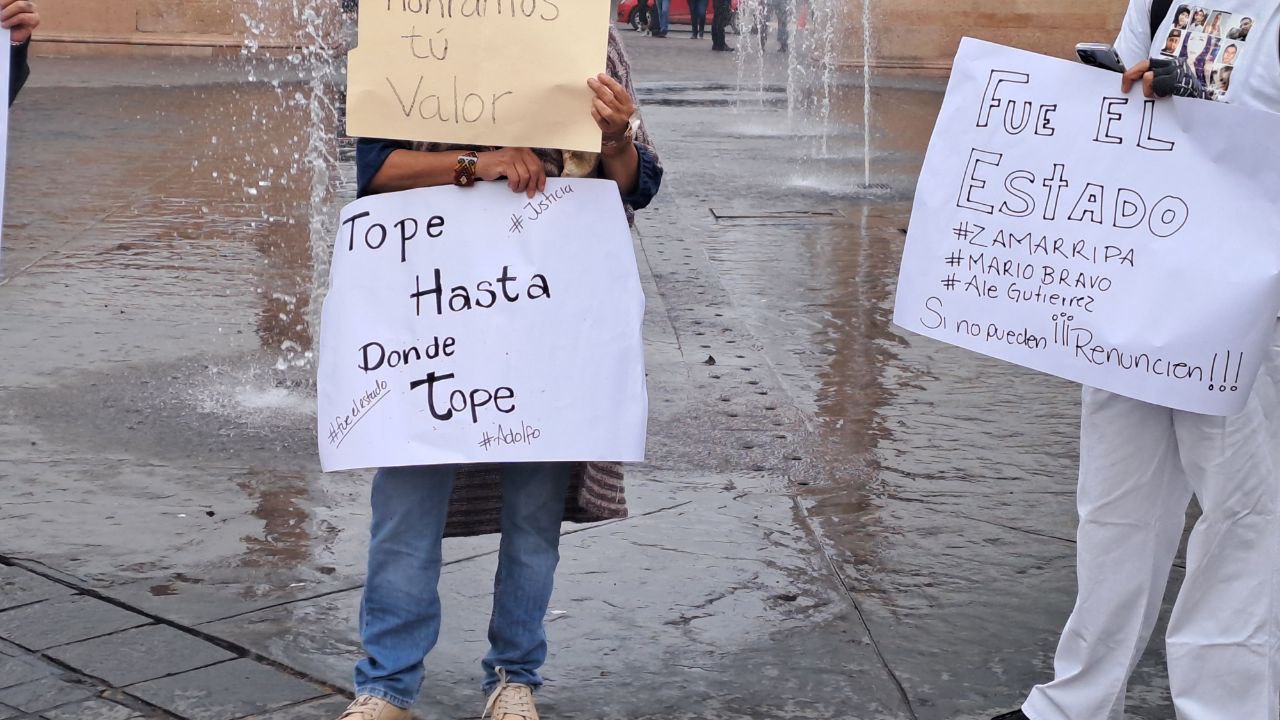 Honramos
tú
Valor
Tope
#Justicia
Hasta
Donde
Tope
#fue el estado
#Adolfo
FUE EL
ESTADO
#ZAMARRIPA
#MARIO BRAVO
#Ale Gutierrez
Si no pueden ¡¡¡Renuncien!!!